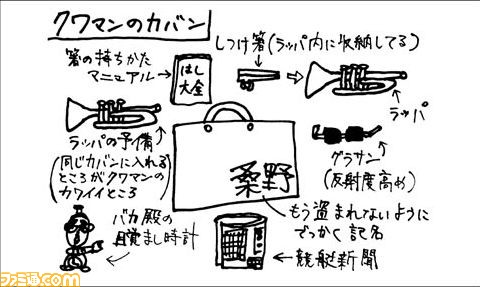 クワマンのカバン
箸の持ちかた
マニュアル
はし
大全
しつけ箸(ラッパ内に収納してる)
ラッパ
ラッパの予備
(同じカバンに入れる
ところがクワマンの
カワイイところ)
グラサン
(反射度高め)
桑野
もう盗まれないように
でっかく記名
バカ殿の
目覚まし時計
競艇新聞
ファミ通.com